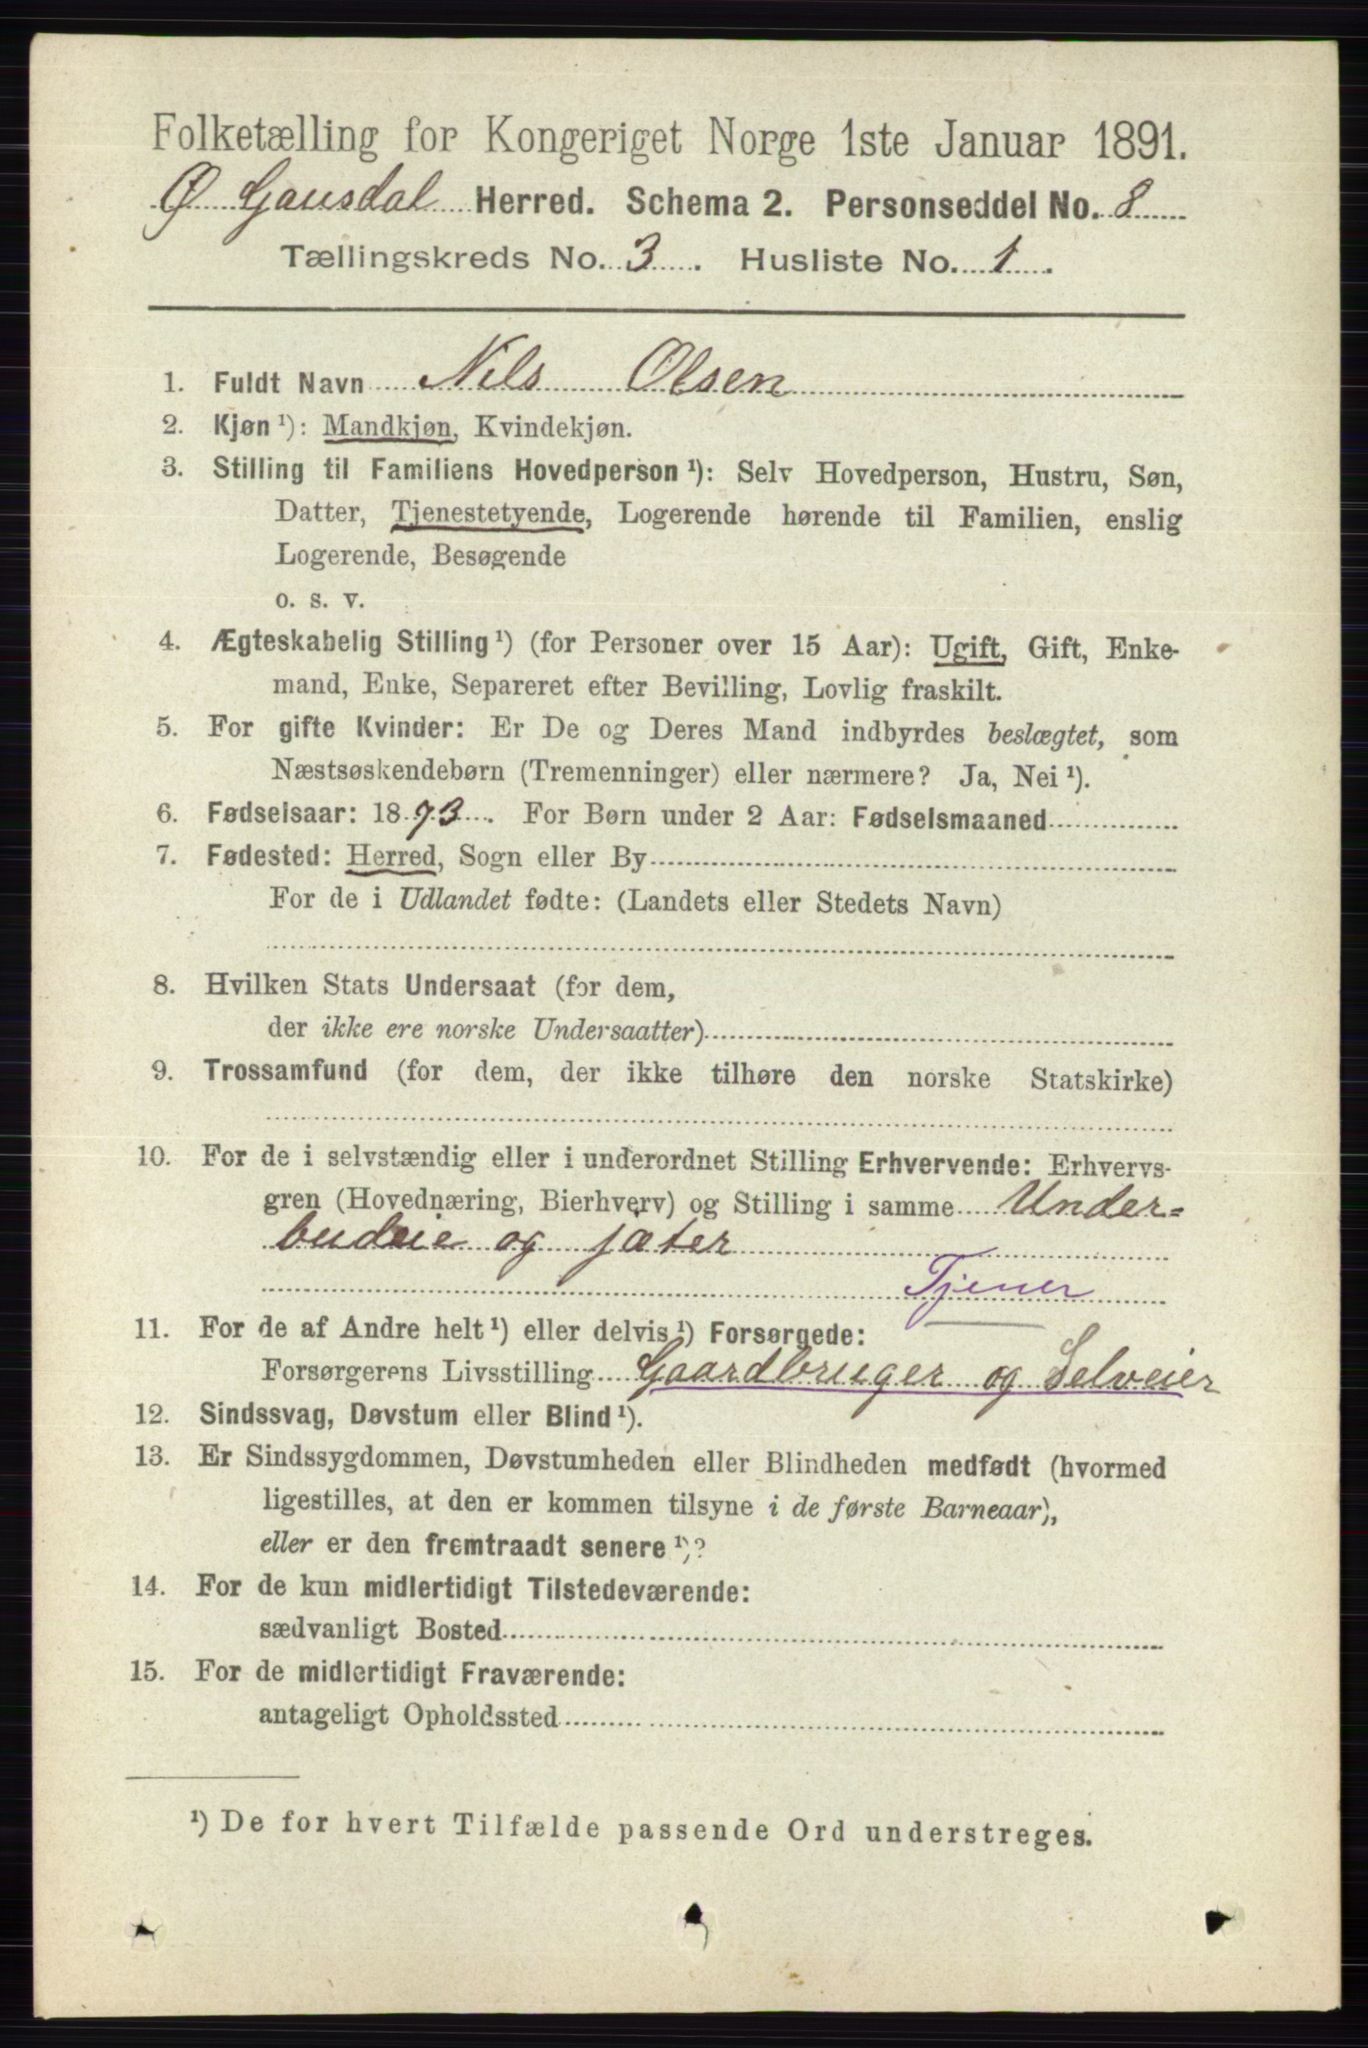 Folketælling for Kongeriget Norge 1ste Januar 1891.
Ø. Gausdal Herred. Schema 2. Personseddel No. 8
Tællingskreds No. 3. Husliste No. 1.
1. Fuldt Navn Nils Olsen
2. Kjøn ¹): Mandkjøn, Kvindekjøn.
3. Stilling til Familiens Hovedperson ¹): Selv Hovedperson, Hustru, Søn,
Datter, Tjenestetyende, Logerende hørende til Familien, enslig
Logerende, Besøgende
o. s. v.
4. Ægteskabelig Stilling ¹) (for Personer over 15 Aar): Ugift, Gift, Enke-
mand, Enke, Separeret efter Bevilling, Lovlig fraskilt.
5. For gifte Kvinder: Er De og Deres Mand indbyrdes beslægtet, som
Næstsøskendebørn (Tremenninger) eller nærmere? Ja, Nei ¹).
6. Fødselsaar: 1873. For Børn under 2 Aar: Fødselsmaaned
7. Fødested: Herred, Sogn eller By
For de i Udlandet fødte: (Landets eller Stedets Navn)
8. Hvilken Stats Undersaat (for dem,
der ikke ere norske Undersaatter)
9. Trossamfund (for dem, der ikke tilhøre den norske Statskirke)
10. For de i selvstændig eller i underordnet Stilling Erhvervende: Erhvervs-
gren (Hovednæring, Bierhverv) og Stilling i samme Under=
budeie og jæter
Tjener
11. For de af Andre helt ¹) eller delvis ¹) Forsørgede:
Forsørgerens Livsstilling Gaardbruger og Selveier
12. Sindssvag, Døvstum eller Blind ¹).
13. Er Sindssygdommen, Døvstumheden eller Blindheden medfødt (hvormed
ligestilles, at den er kommen tilsyne i de første Barneaar),
eller er den fremtraadt senere ¹)?
14. For de kun midlertidigt Tilstedeværende:
sædvanligt Bosted
15. For de midlertidigt Fraværende:
antageligt Opholdssted
¹) De for hvert Tilfælde passende Ord understreges.